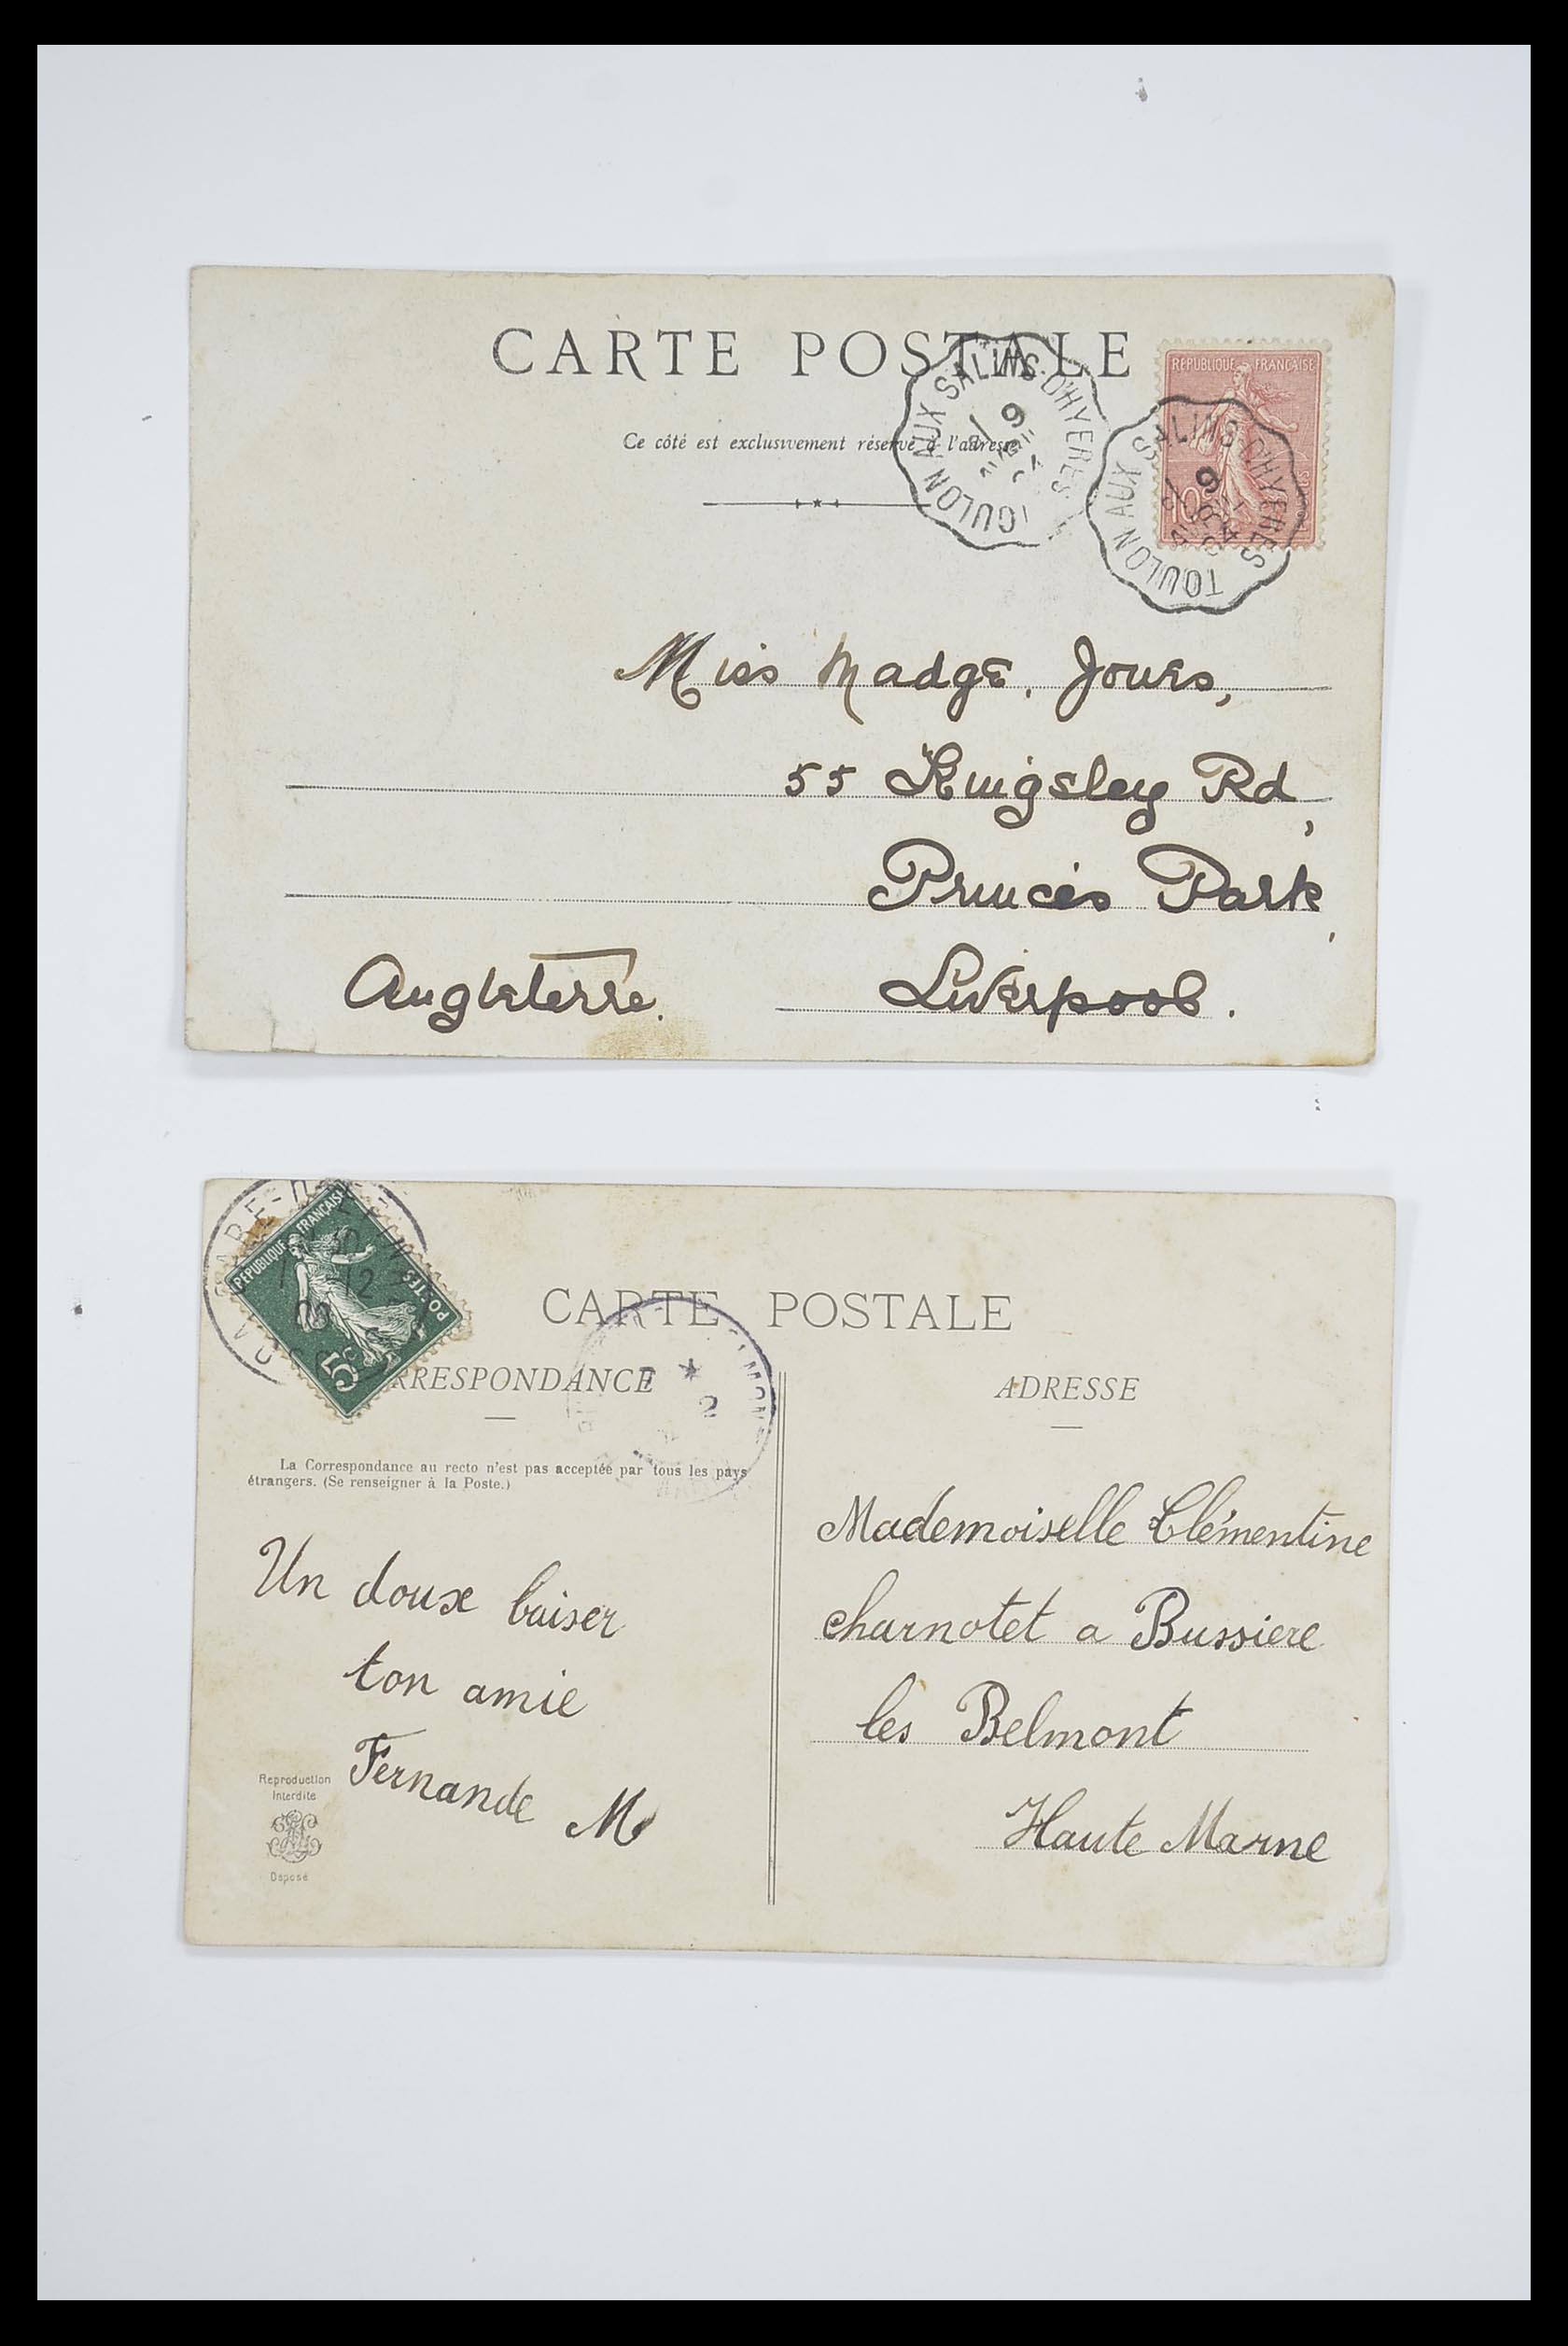 CARTE POSTALE
REPUBLIQUE FRANÇAISE
10
TOULON AUX SALINS-D'HYERES
TOULON AUX SALINS-D'HYERES
Ce côté est exclusivement réservé à l'adresse
Miss Madge. Jones,
55 Kingsley Rd,
Princes Park,
Angleterre. Liverpool.
REPUBLIQUE FRANÇAISE
POSTES
5c
CARTE POSTALE
CORRESPONDANCE
ADRESSE
La Correspondance au recto n'est pas acceptée par tous les pays
étrangers. (Se renseigner à la Poste.)
Un doux baiser
ton amie
Fernande M
Reproduction
Interdite
Déposé
Mademoiselle Clémentine
charnotet a Bussiere
les Belmont
Haute Marne